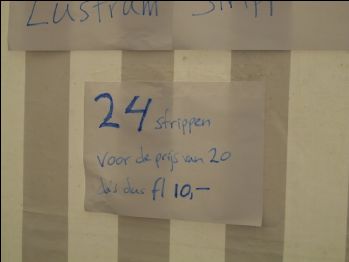 Lustrum Stripp
24 strippen
voor de prijs van 20
da's dus fl 10,-